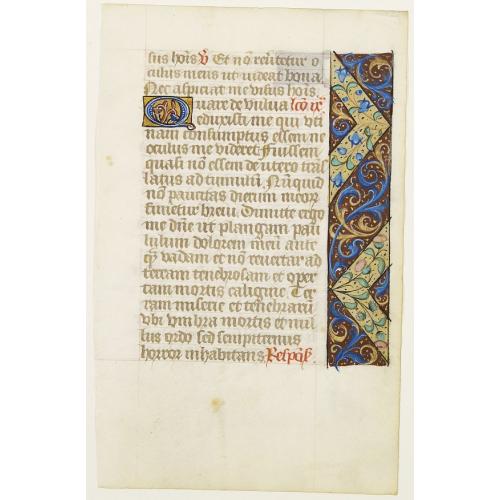 sus hoīs ꝟ Et nō reūtetur o
culus meus ut videat bona.
Nec aspiciat me visus hoīs.
Quare de vulva lc̄o ix
eduxisti me qui uti
nam consumptus essem ne
oculus me videret Fuissem
quasi nō essem de utero trās
latus ad tumulū. Nūquid
nō paucitas dierum meoꝝ
finietur brevi Dimitte ergo
me dn̄e ut plangam pau
lulum dolorem meū ante
qͣ vadam et nō revertar ad
terram tenebrosam et oper
tam mortis caligine Ter
ram miserie et tenebrarū
ubi umbra mortis et nul
lus ordo sed sempiternus
horror inhabitans Respōs.